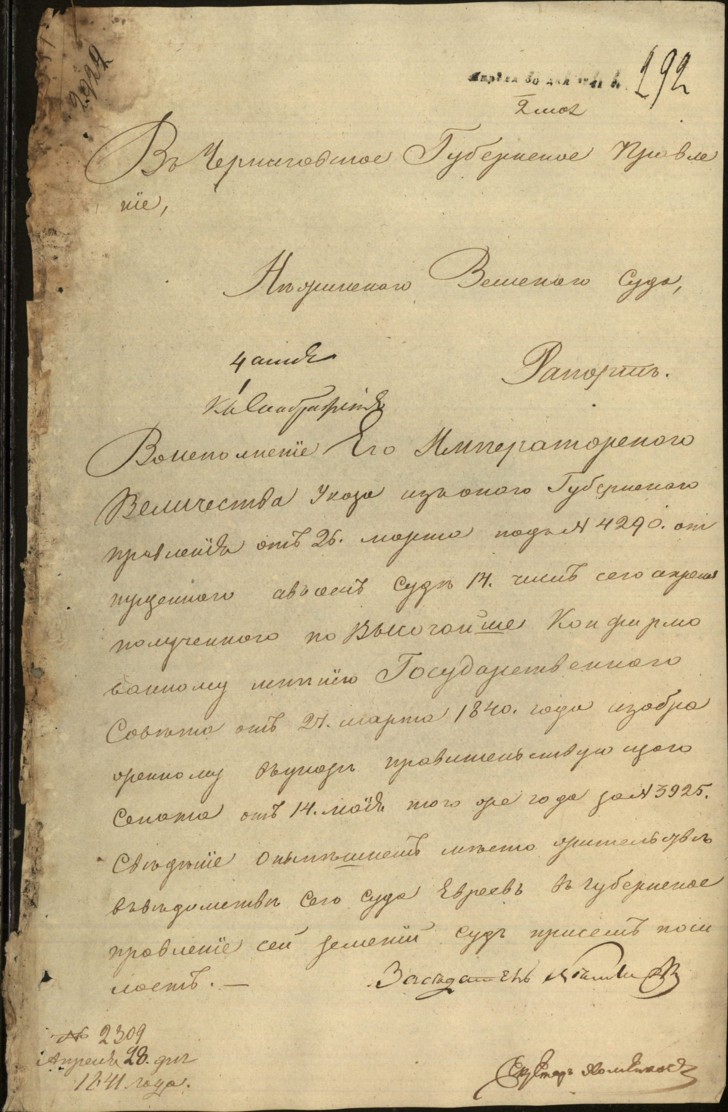 2922
Апреля 30 дня 1841 г.
292
2 stol
Въ Черниговское Губернское Правле
ніе,
Нѣжинского Земского Суда,
Рапортъ.
Воисполненіе Его Императорского
Величества Указа изъ оного Губернского
правленія отъ 26. марта подъ № 4290. от
пущенного а въ семъ судѣ 14. числа сего апреля
полученного по Высочайше Конфирмо
ванному мнѣнію Государственного
Совѣта отъ 27. марта 1840. года изобра
женному въ указѣ правительствующого
сената отъ 14. маія того же года за № 3925.
Свѣдѣніе о имѣющемъ мѣсто жительствѣ
въ вѣдомствѣ сего суда Евреевъ въ Губернское
правленіе сей земскій судъ присемъ посы
лаетъ. —
Засѣдатель
№ 2309
Апреля 28. дня
1841 года.
Секретарь